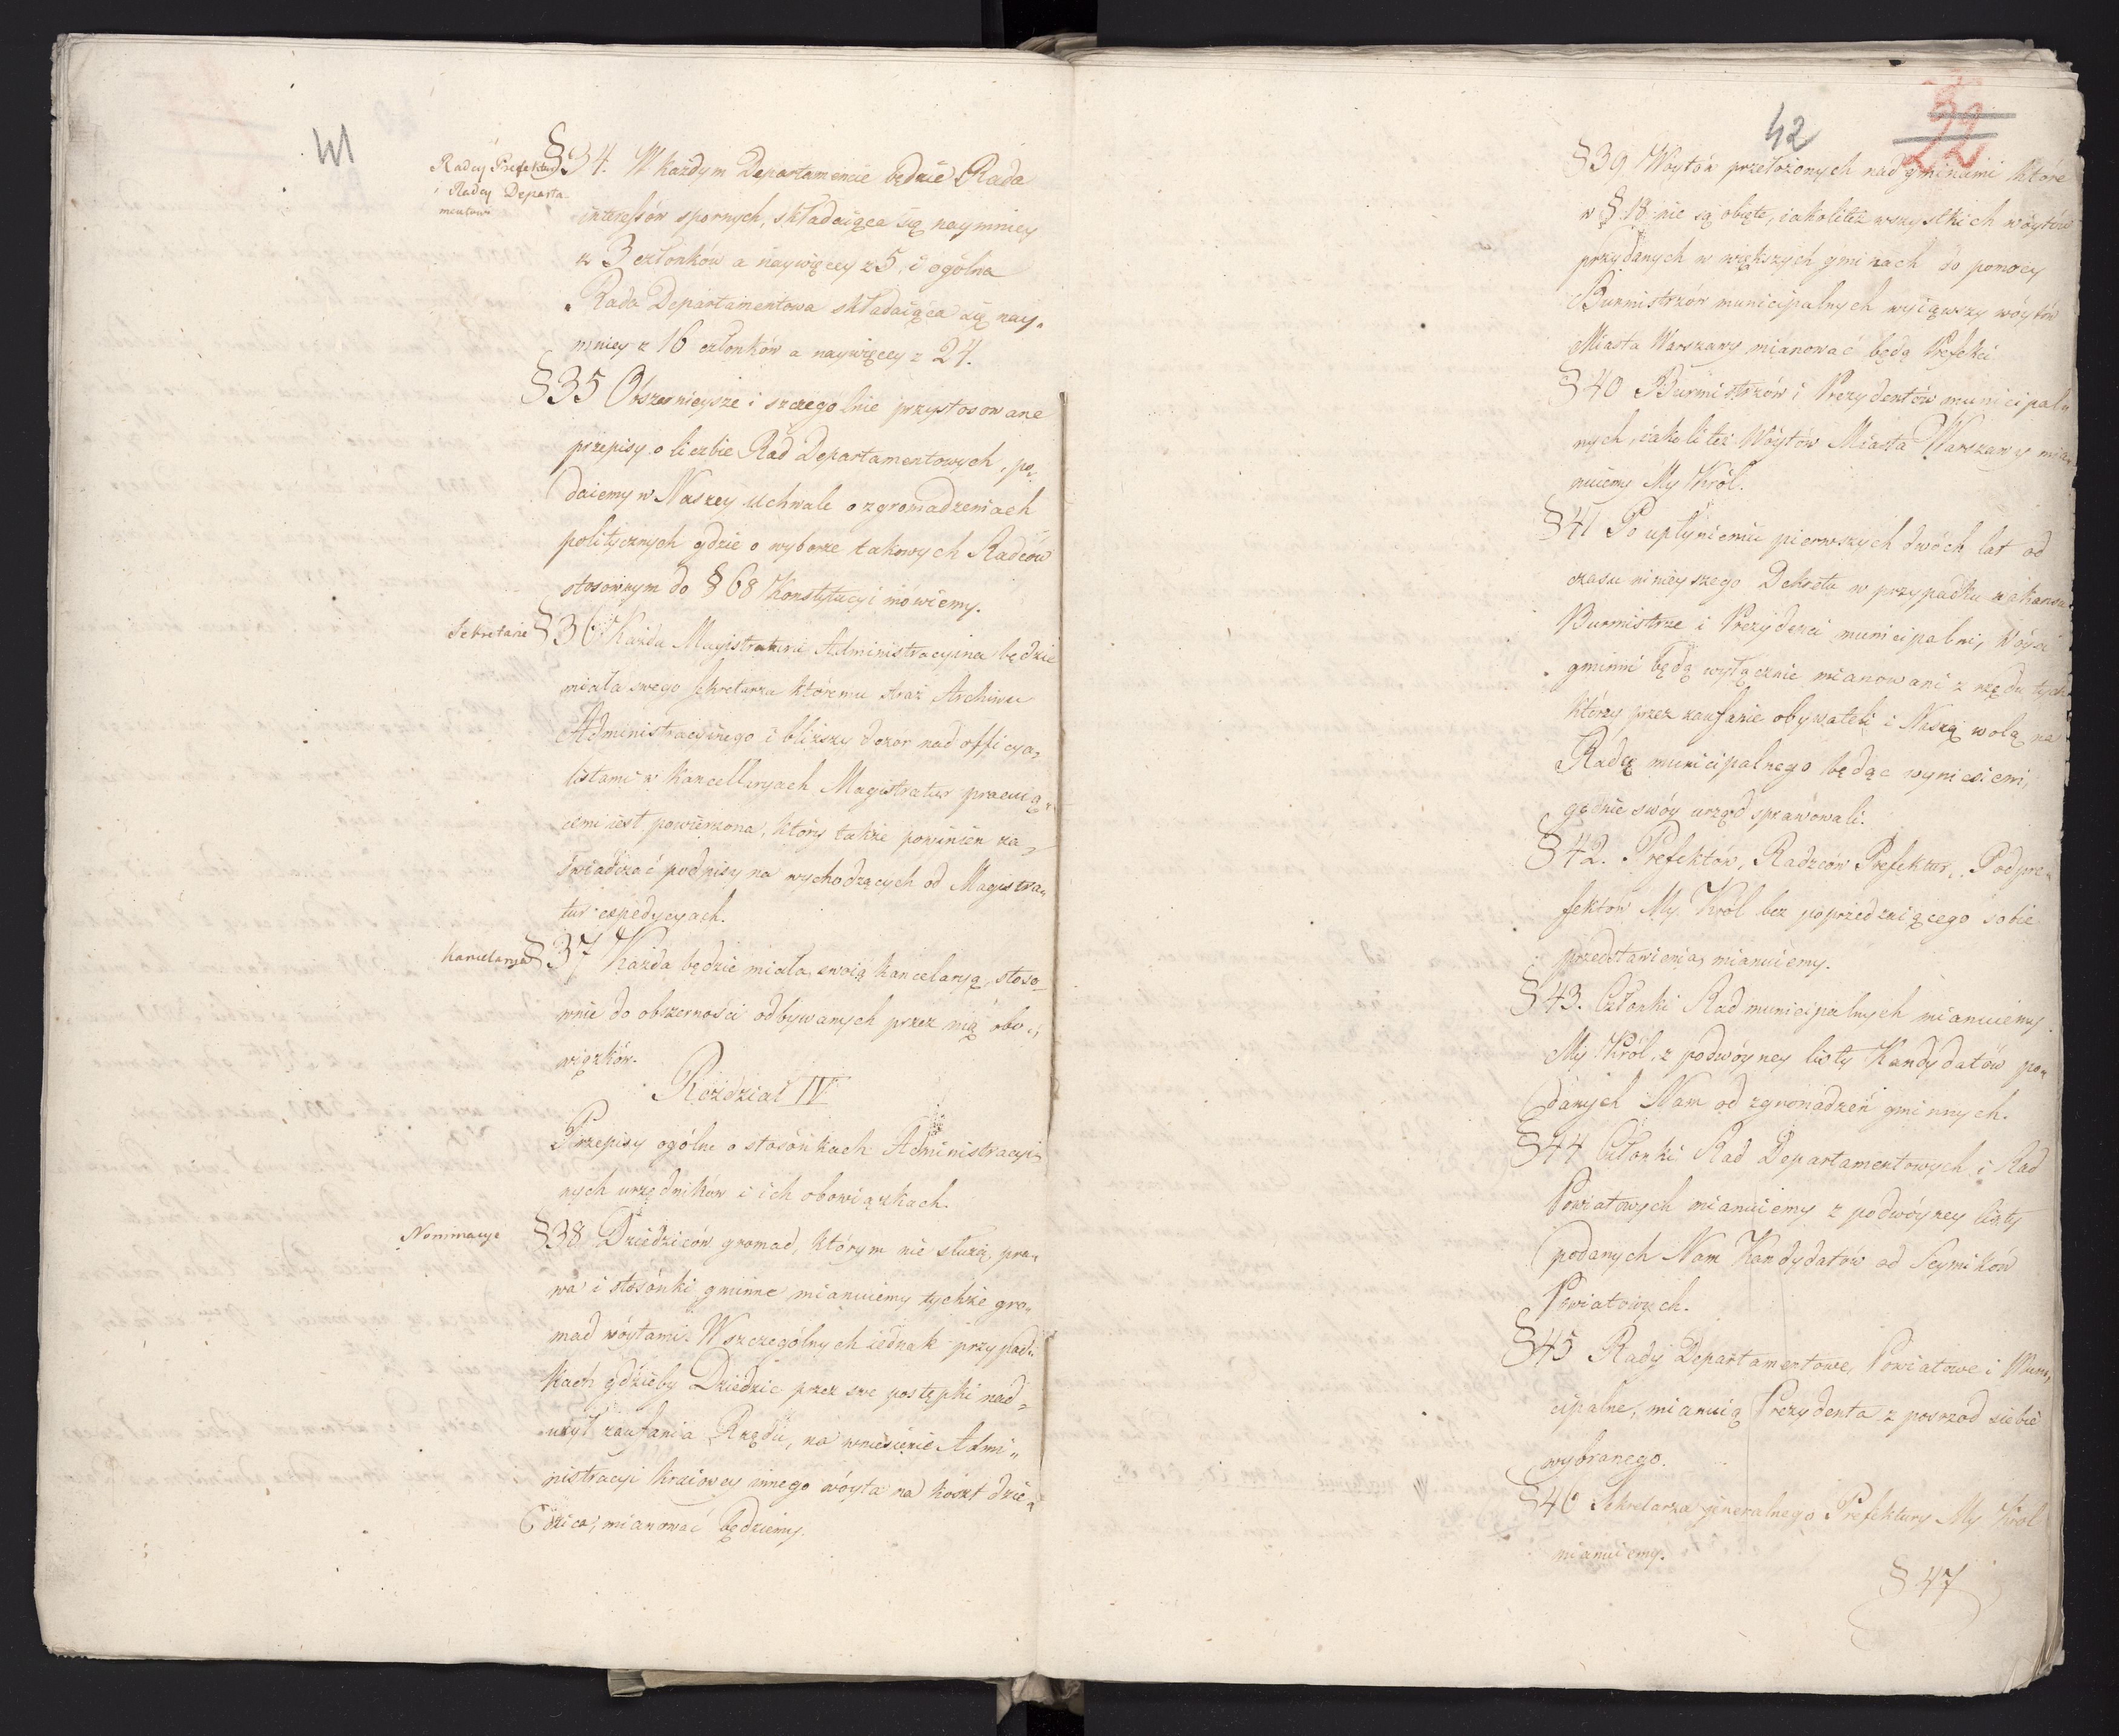 41
Radcy Prefektur
i Radcy Departa
mentowi
§ 34. W każdym Departamencie będzie Rada
interessów spornych, składaiąca się naymniey
z 3 członków a naywięcey z 5, i ogólna
Rada Departamentowa składaiąca się nay„
mniey z 16 członków a naywięcey z 24.
§ 35 Obszernieysze i szczególnie przystosowane
przepisy o liczbie Rad Departamentowych, po„
daiemy w Naszey Uchwale o zgromadzeniach
politycznych gdzie o wyborze takowych Radców
stosownym do § 68 Konstytucyi mówiemy.
Sekretarze
§ 36 Każda Magistratura Administracyina będzie
miała swego Sekretarza któremu straż Archiwu
Administracyinego i bliższy dozor nad officya„
listami w Kancellaryach Magistratur pracuią„
cemi iest powierzona, który także powinien za„
świadczać podpisy na wychodzących od Magistra„
tur expedycyach.
Kancelarya
§ 37 Każda będzie miała swoią kancelaryą, stoso„
wnie do obszerności odbywanych przez nią obo„
wiązków.
Rozdział IV
Przepisy ogólne o stosónkach Administracyi„
nych urzędników i ich obowiązkach.
Nominacye
§ 38 Dziedziców gromad, którym nie służą pra„
wa i stosónki gminne mianuiemy tychże gro„
mad wóytami. W szczególnych iednak przypad„
kach gdzieby Dziedzic przez swe postępki nad„
użył zaufania Rządu, na wniesienie Admi„
nistracyi kraiowey innego wóyta na koszt dzie„
dzica, mianować będziemy.
42
22
§ 39 Woytów przełożonych nad gminami które
w § 18 nie są obięte, iakoliteż wszystkich wóytów
przydanych w większych gminach do pomocy
Burmistrzów municipalnych wyiąwszy wóytów
Miasta Warszawy mianować będą Prefekci.
§ 40 Burmistrzów i Prezydentów municipal„
nych, iakoliteż Wóytów Miasta Warszawy mia„
nuiemy My Król.
§ 41 Po upłynieniu pierwszych dwóch lat od
czasu ninieyszego Dekretu w przypadku wakansu
Burmistrze i Prezydenci municipalni, Wóyci
gminni będą wyłącznie mianowani z rzędu tych
którzy przez zaufanie obywateli i Naszą wolą na
Radcę municipalnego będąc wyniesieni,
godnie swóy urząd sprawowali.
§ 42. Prefektów, Radzców Prefektur, Podpre„
fektów My Król bez poprzedzaiącego sobie
przedstawienia, mianuiemy.
§ 43. Członki Rad municipalnych mianuiemy
My Król, z podwóyney listy Kandydatów po„
danych Nam od zgromadzeń gminnych.
§ 44 Członki Rad Departamentowych i Rad
Powiatowych mianuiemy z podwóyney listy
podanych Nam Kandydatów od Seymików
Powiatowych.
§ 45 Rady Departamentowe, Powiatowe i Muni„
cipalne, mianuią Prezydenta z posrzod siebie
wybranego.
§ 46 Sekretarza generalnego Prefektury My Krol
mianuiemy.
§ 47